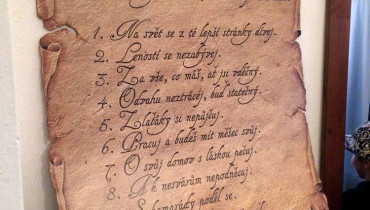 1. Na svět se z té lepší stránky dívej.
2. Leností se nezabývej.
3. Za vše, co máš, ať jsi vděčný.
4. Odvahu neztrácej, buď statečný.
5. Zlaťáky si nepůjčuj.
6. Pracuj a budeš mít měšec svůj.
7. O svůj domov s láskou pečuj.
8. A k nesvárům nepodněcuj.
S kamarády poděl se.